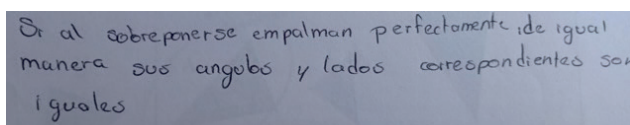 Si al sobreponerse empalman perfectamente, de igual
manera sus angubs y lados correspondientes son
iguales